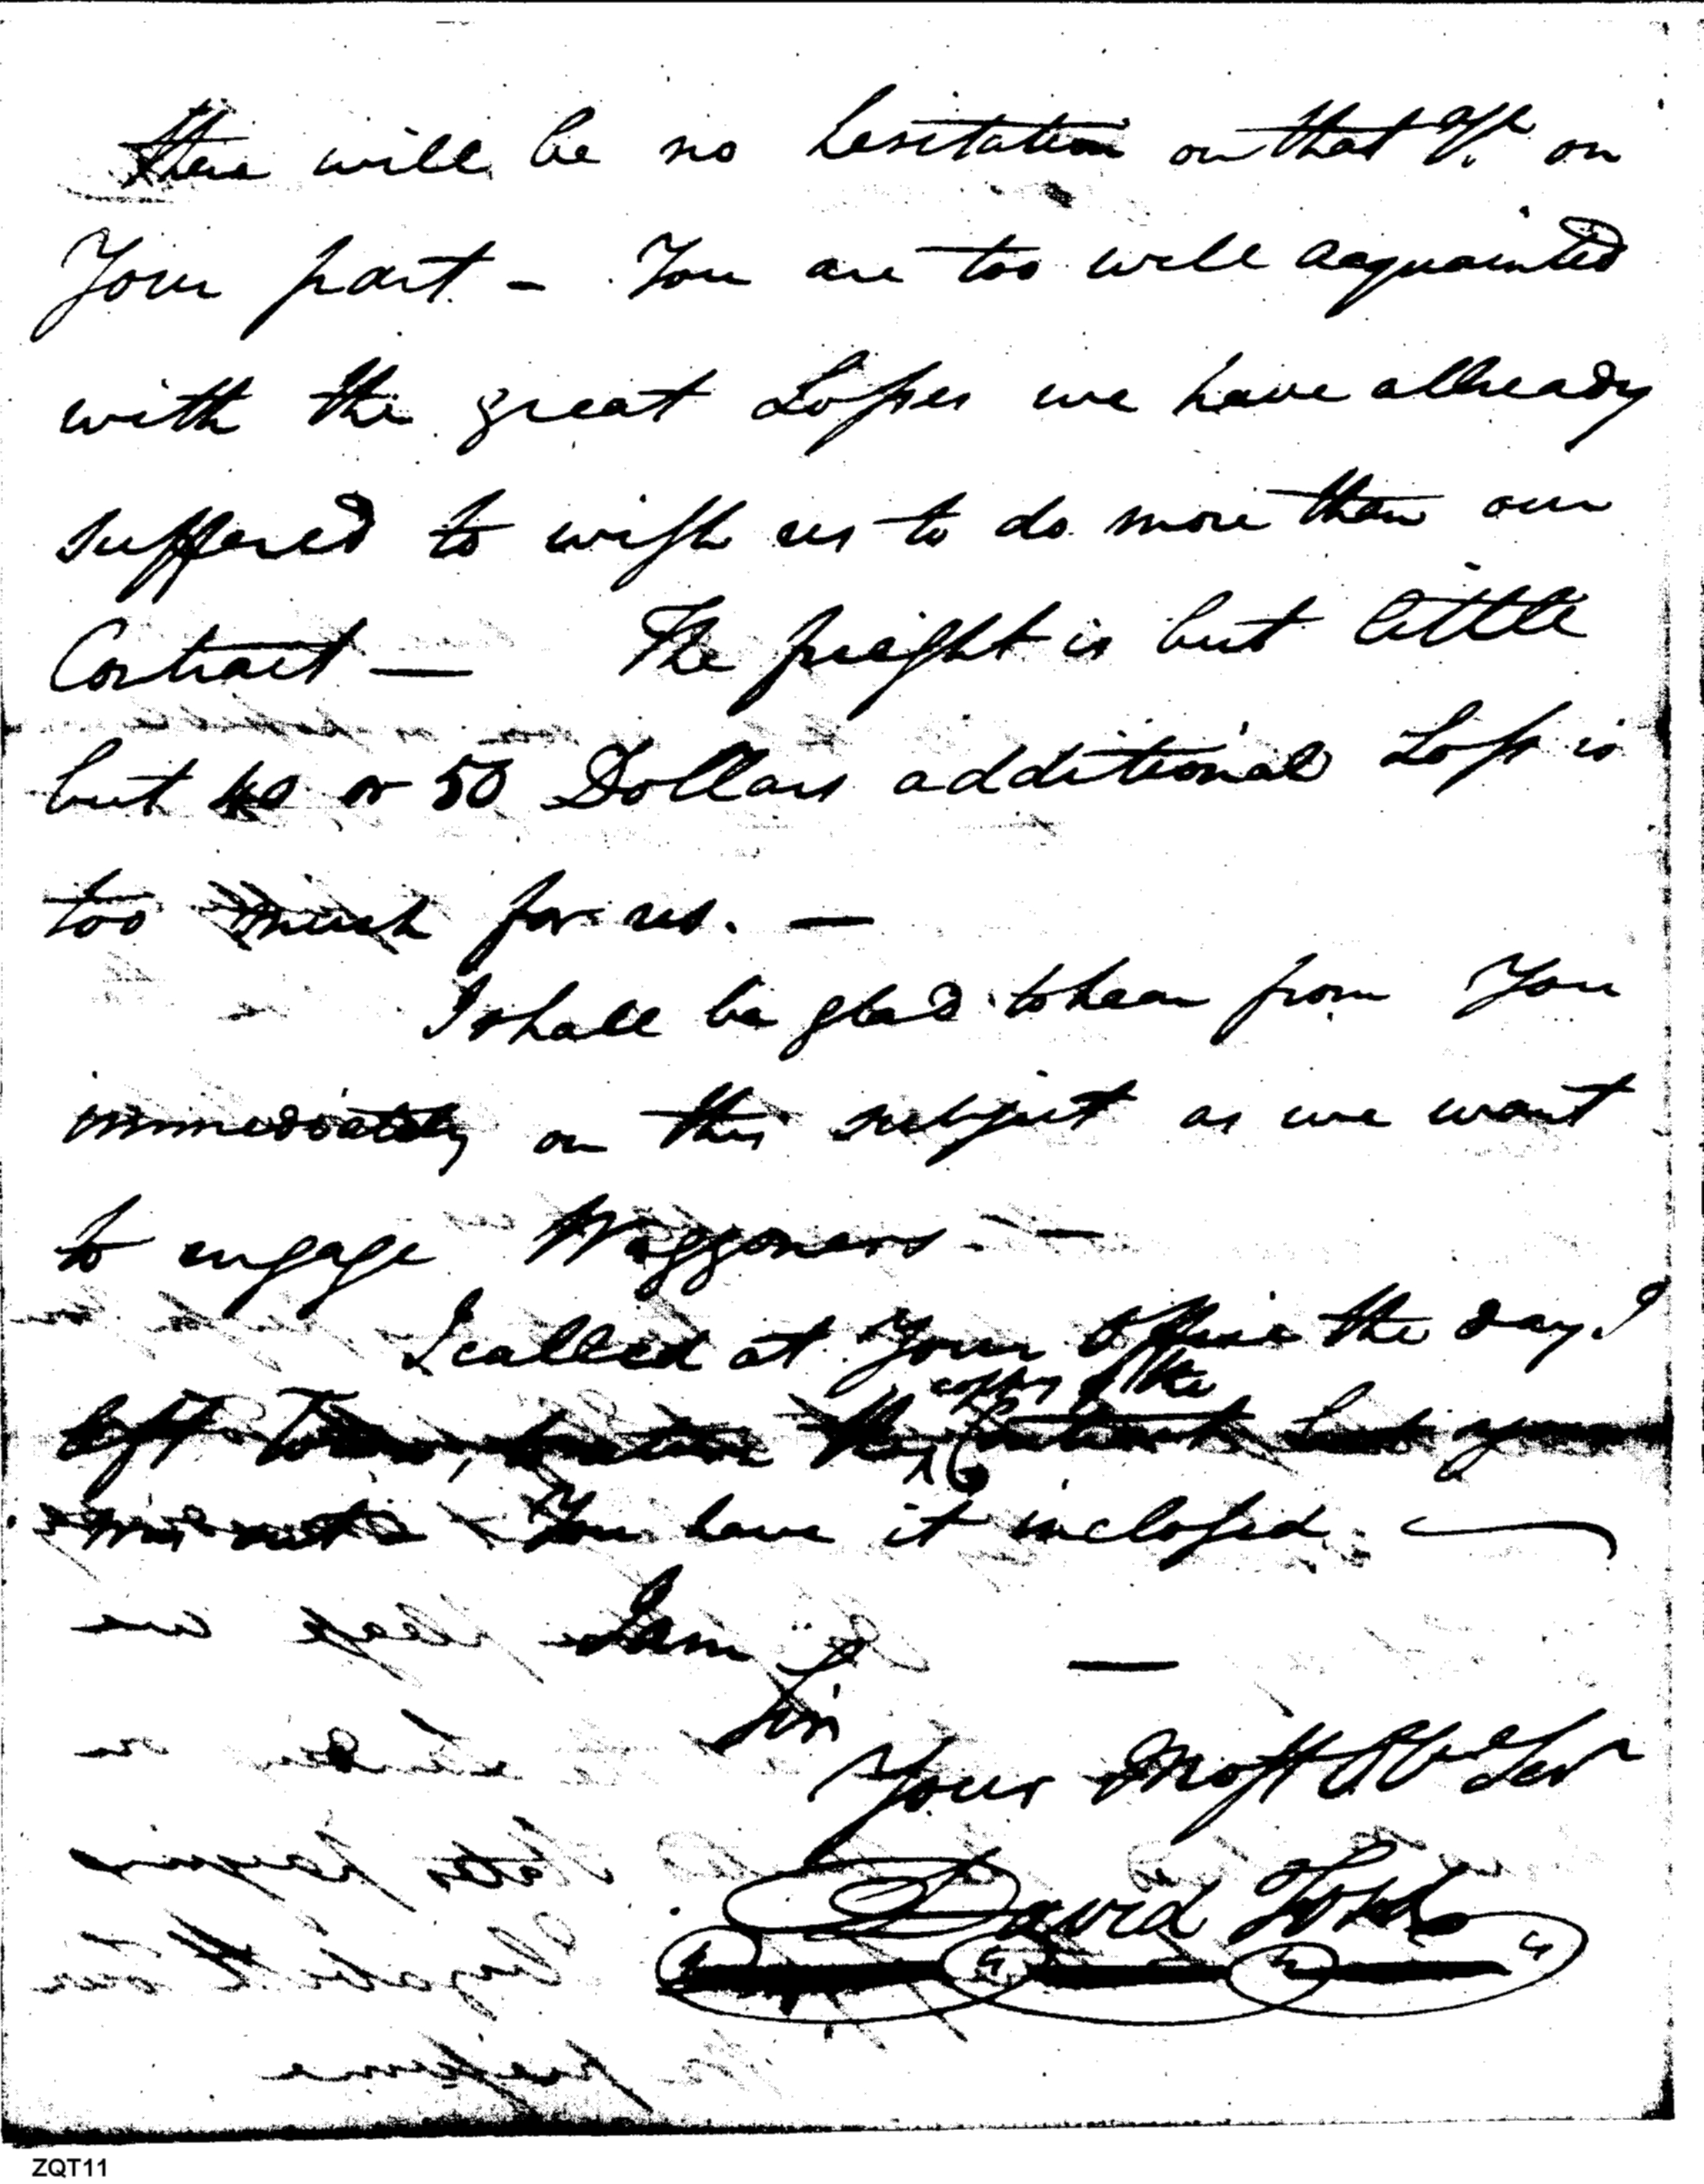 there will be no hesitation on that on
Your part – You are too well acquainted
with the great Losses we have allready
suffered to wish us to do more than our
Contract — The freight is but little
but 40 or 50 Dollars additional Loss is
too much for us. —
I shall be glad to hear from You
immediately on this subject as we want
to engage Waggoners —
I called at Your Office the day I
copy of the
left Town, the Contract
You have it inclosed.
I am
Sir
Your Most Obt Ser
David Ford
ZQT11